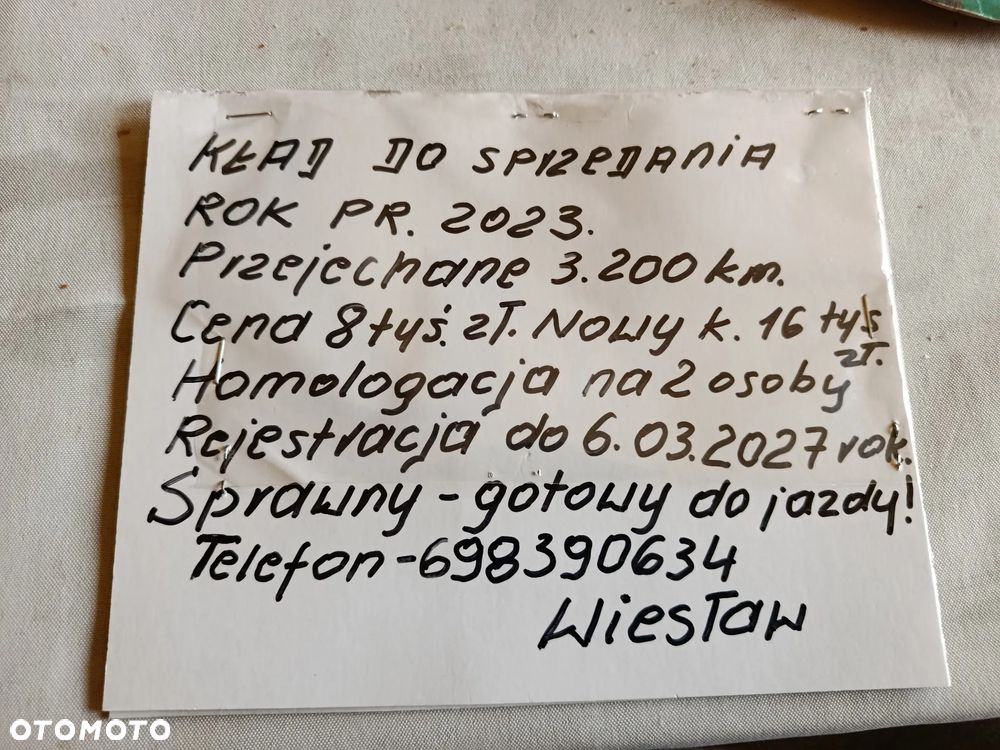 KŁAD DO SPRZEDANIA
ROK PR. 2023.
Przejechane 3.200 km.
Cena 8 tyś. zł. Nowy k. 16 tyś zł.
Homologacja na 2 osoby
Rejestracja do 6.03.2027 rok.
Sprawny - gotowy do jazdy!
Telefon - 698390634
Wiesław
OTOMOTO